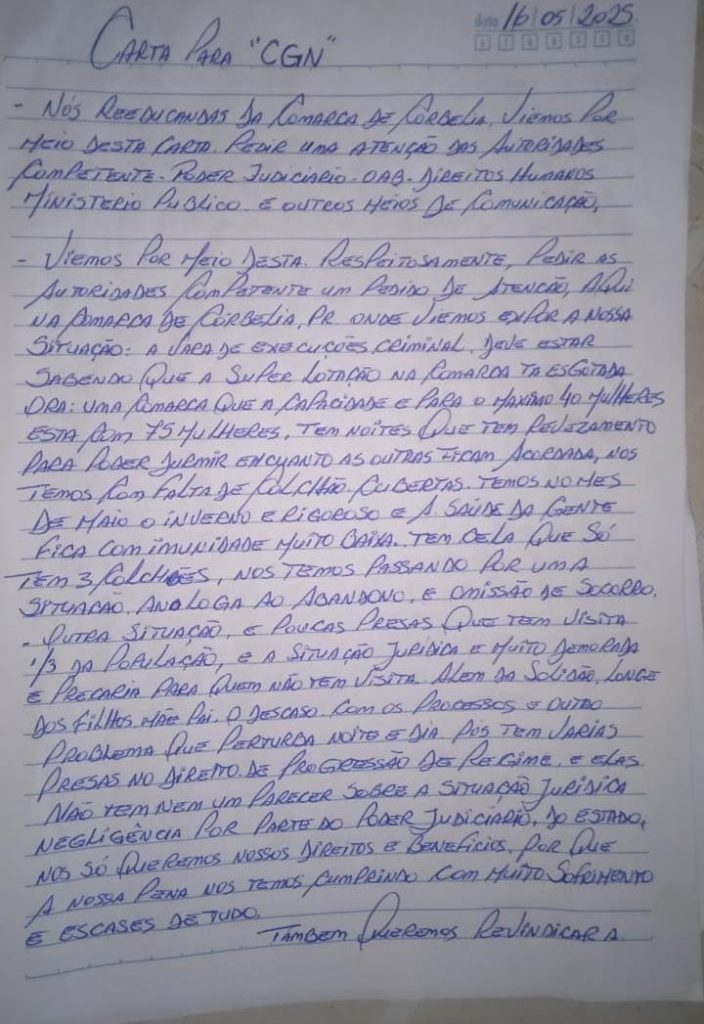 data 16/05/2025
CARTA PARA "CGN"
- NÓS REEDUCANDAS DA COMARCA DE CORBELIA, VIEMOS POR
MEIO DESTA CARTA. PEDIR UMA ATENÇÃO DAS AUTORIDADES
COMPETENTE. PODER JUDICIARIO - OAB - DIREITOS HUMANOS
MINISTERIO PUBLICO. E OUTROS MEIOS DE COMUNICAÇÃO,
- VIEMOS POR MEIO DESTA. RESPEITOSAMENTE, PEDIR AS
AUTORIDADES COMPETENTE UM PEDIDO DE ATENCÃO, AQUI
NA COMARCA DE CORBELIA, PR. ONDE VIEMOS EXPOR A NOSSA
SITUAÇÃO: A VARA DE EXECUÇÕES CRIMINAL. DEVE ESTAR
SABENDO QUE A SUPER LOTAÇÃO NA COMARCA TA ESGOTADA
ORA: UMA COMARCA QUE A CAPACIDADE E PARA O MAXIMO 40 MULHERES
ESTA COM 75 MULHERES, TEM NOITES QUE TEM REVEZAMENTO
PARA PODER DURMIR ENCUANTO AS OUTRAS FICAM ACORDADA, NOS
TEMOS COM FALTA DE COLCHÃO. CUBERTAS. TEMOS NO MES
DE MAIO O INVERNO E RIGOROSO E A SAÚDE DA GENTE
FICA COM IMUNIDADE MUITO BAIXA. TEM CELA QUE SÓ
TEM 3 COLCHÕES, NOS TEMOS PASSANDO POR UMA
SITUACÃO. ANALOGA AO ABANDONO, E OMISSÃO DE SOCORRO.
- OUTRA SITUAÇÃO, E POUCAS PRESAS QUE TEM VISITA
1/3 DA POPULAÇÃO, E A SITUAÇÃO JURIDICA E MUITO DEMORADA
E PRECARIA PARA QUEM NÃO TEM VISITA. ALEM DA SOLIDÃO, LONGE
DOS FILHOS. MÃE PAI. O DESCASO COM OS PROCESSOS E OUTRO
PROBLEMA QUE PERTURBA NOITE E DIA. POS TEM VARIAS
PRESAS NO DIREITO. DE PROGRESSÃO DE REGIME. E ELAS
NÃO TEM NEM UM PARECER SOBRE A SITUAÇÃO JURIDICA
NEGLIGÊNCIA POR PARTE DO PODER JUDICIARIO. DO ESTADO,
NOS SÓ QUEREMOS NOSSOS DIREITOS E BENEFICIOS, POR QUE
A NOSSA PENA NOS TEMOS CUMPRINDO COM MUITO SOFRIMENTO
E ESCASES DE TUDO.
TAMBEM QUEREMOS REVINDICAR A